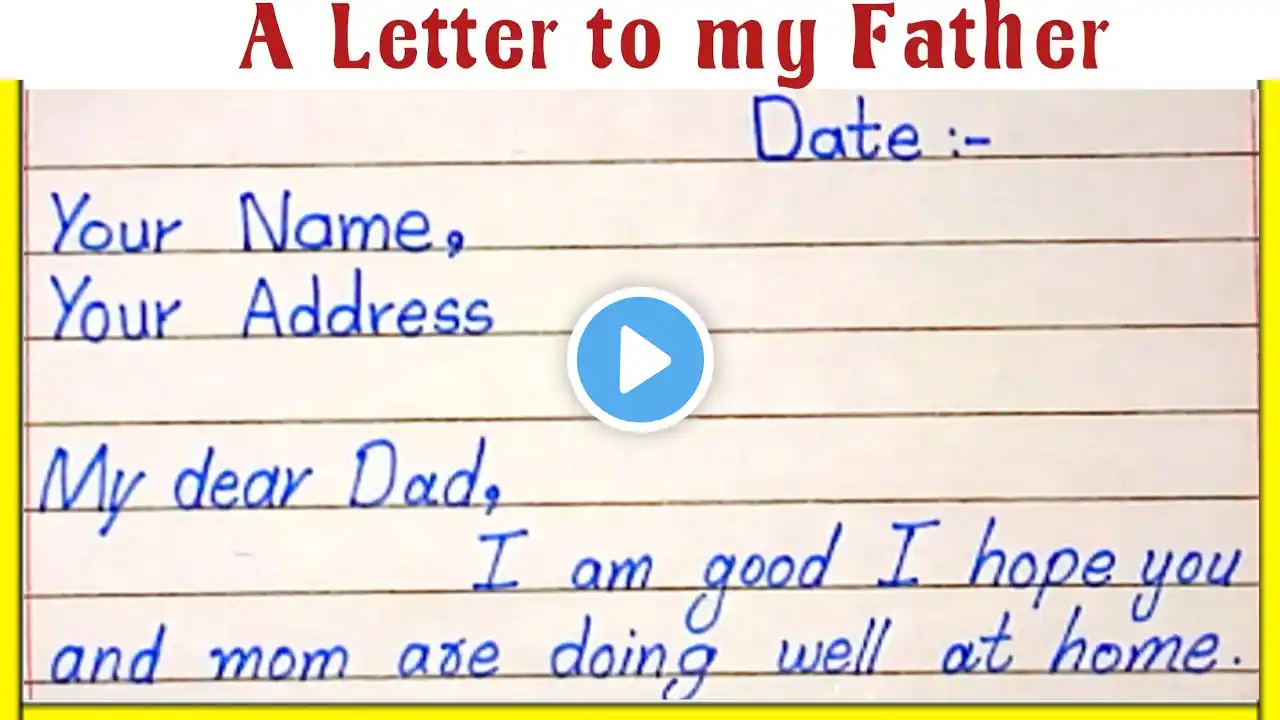 A Letter to my Father
Date :-
Your Name,
Your Address
My dear Dad,
I am good I hope you
and mom are doing well at home.